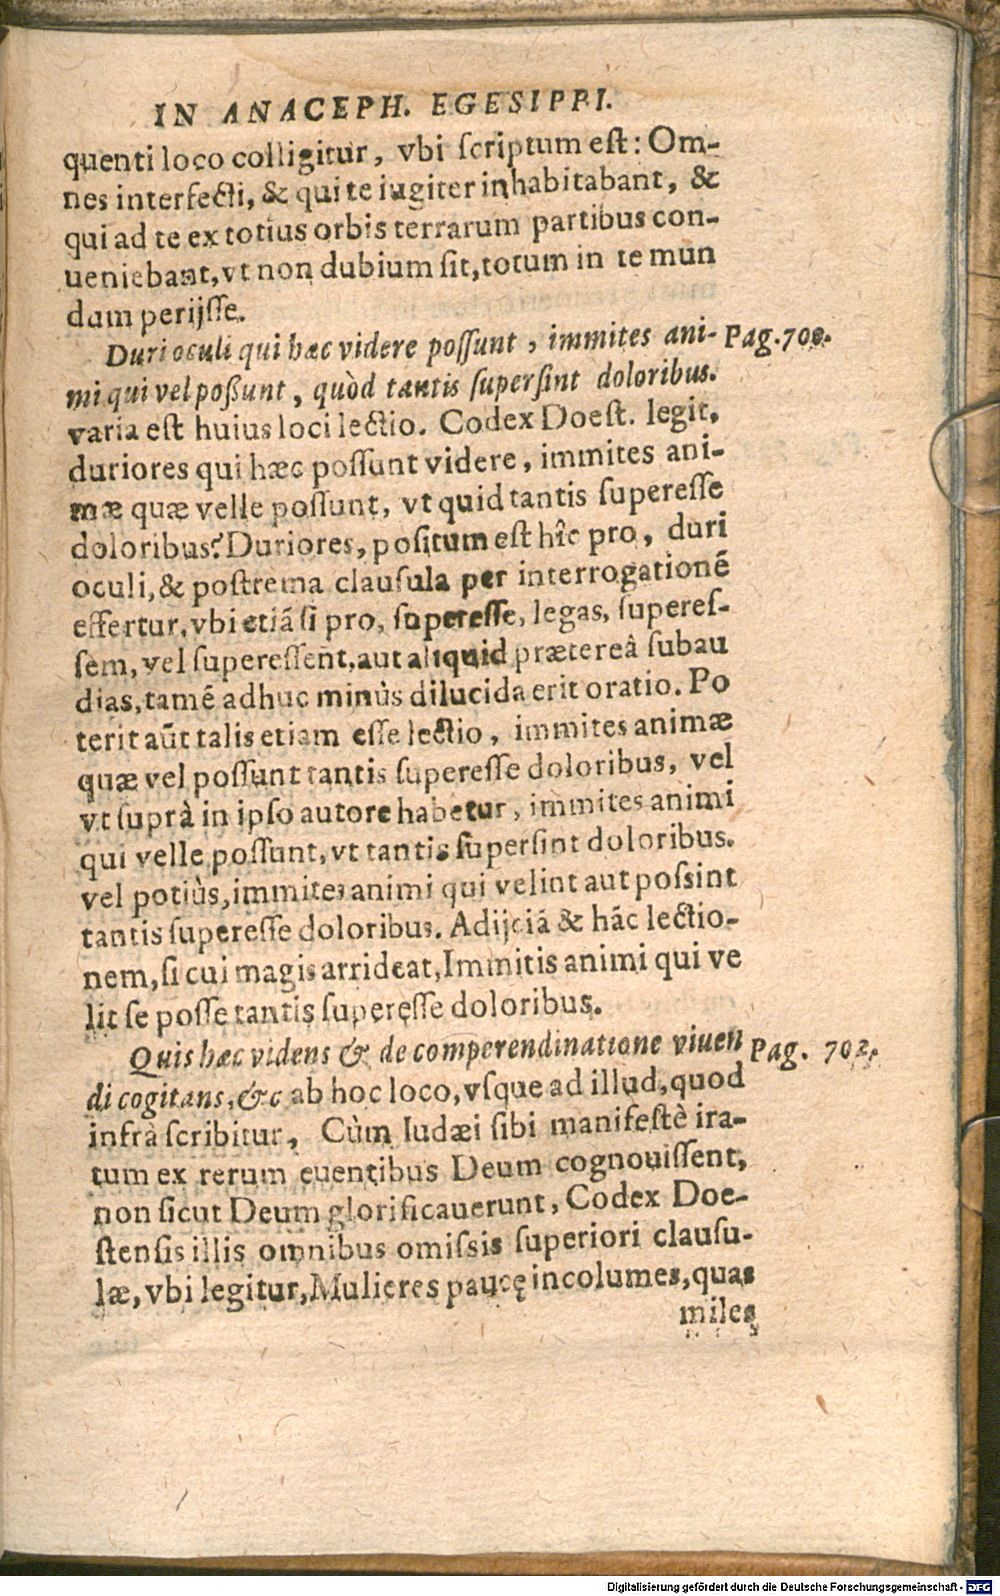 IN ANACEPH. EGESIPPI.
quenti loco colligitur, vbi ſcriptum eſt: Om-
nes interfecti, & qui te iugiter inhabitabant, &
qui ad te ex totius orbis terrarum partibus con-
ueniebant, vt non dubium ſit, totum in te mun
dum perijſſe.
Duri oculi qui hæc videre poſſunt, immites ani- Pag. 700.
mi qui vel poßunt, quòd tantis ſuperſint doloribus.
varia eſt huius loci lectio. Codex Doeſt. legit,
duriores qui hæc poſſunt videre, immites ani-
mæ quæ velle poſſunt, vt quid tantis ſupereſſe
doloribus? Duriores, poſitum eſt hîc pro, duri
oculi, & poſtrema clauſula per interrogationē
effertur, vbi etiā ſi pro, ſupereſſe, legas, ſupereſ-
ſem, vel ſupereſſent, aut aliquid prætereâ ſubau
dias, tamē adhuc minùs dilucida erit oratio. Po
terit aūt talis etiam eſſe lectio, immites animæ
quæ vel poſſunt tantis ſupereſſe doloribus, vel
vt ſuprà in ipſo autore habetur, immites animi
qui velle poſſunt, vt tantis ſuperſint doloribus.
vel potiùs, immites animi qui velint aut poſsint
tantis ſupereſſe doloribus. Adijciā & hāc lectio-
nem, ſi cui magis arrideat, Immitis animi qui ve
lit ſe poſſe tantis ſupereſſe doloribus.
Quis hæc videns & de comperendinatione viuen Pag. 702.
di cogitans, &c ab hoc loco, vſque ad illud, quod
infrà ſcribitur, Cùm Iudæi ſibi manifeſtè ira-
tum ex rerum euentibus Deum cognouiſſent,
non ſicut Deum glorificauerunt, Codex Doe-
ſtenſis illis omnibus omiſsis ſuperiori clauſu-
læ, vbi legitur, Mulieres paucę incolumes, quas
miles
Digitalisierung gefördert durch die Deutsche Forschungsgemeinschaft - DFG